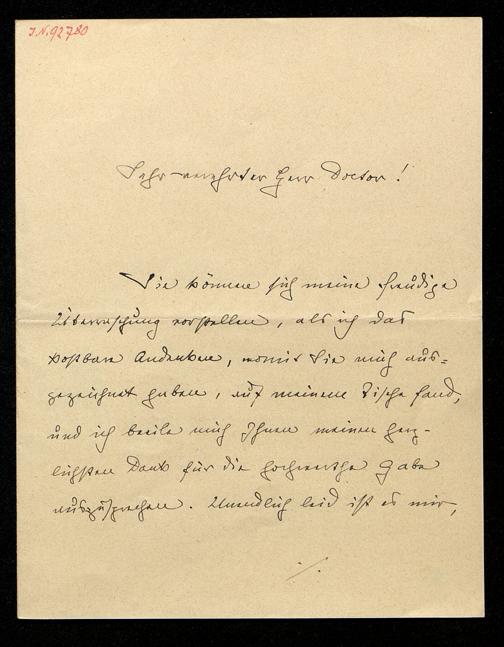 J.N. 92780
Sehr verehrter Herr Doctor!
Sie können sich meine freudige
Überraschung vorstellen, als ich das
kostbare Andenken, womit Sie mich aus-
gezeichnet haben, auf meinem Tische fand,
und ich beeile mich Ihnen meinen herz-
lichsten Dank für die hochwerthe Gabe
auszusprechen. Unendlich leid ist es mir,
./.